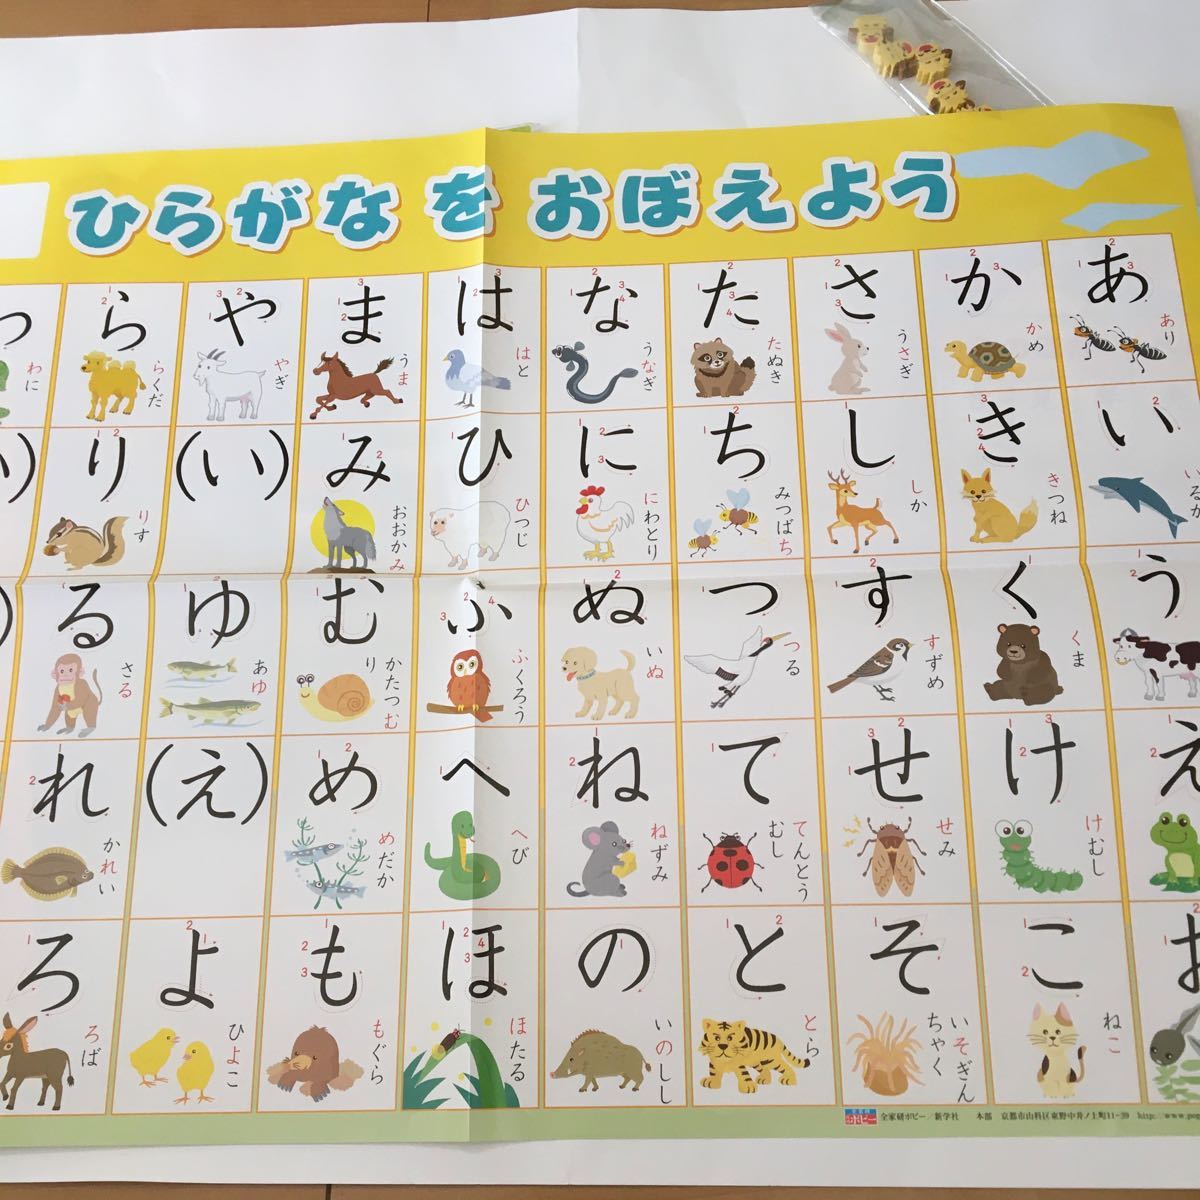 ひらがな を おぼえよう
あ
あり
い
う
え
か
かめ
き
きつね
く
くま
け
けむし
こ
ねこ
さ
うさぎ
し
しか
す
すずめ
せ
せみ
そ
いそぎん
ちゃく
た
たぬき
ち
みつばち
つ
つる
て
てんとう
むし
と
とら
な
うなぎ
に
にわとり
ぬ
いぬ
ね
ねずみ
の
いのしし
は
はと
ひ
ひつじ
ふ
ふくろう
へ
へび
ほ
ほたる
ま
うま
み
おおかみ
む
かたつむ
り
め
めだか
も
もぐら
や
やぎ
(い)
ゆ
あゆ
(え)
よ
ひよこ
ら
らくだ
り
りす
る
さる
れ
かれい
ろ
ろば
わに
全家研ポピー/新学社 本部 京都市山科区東野中井ノ上町11-39